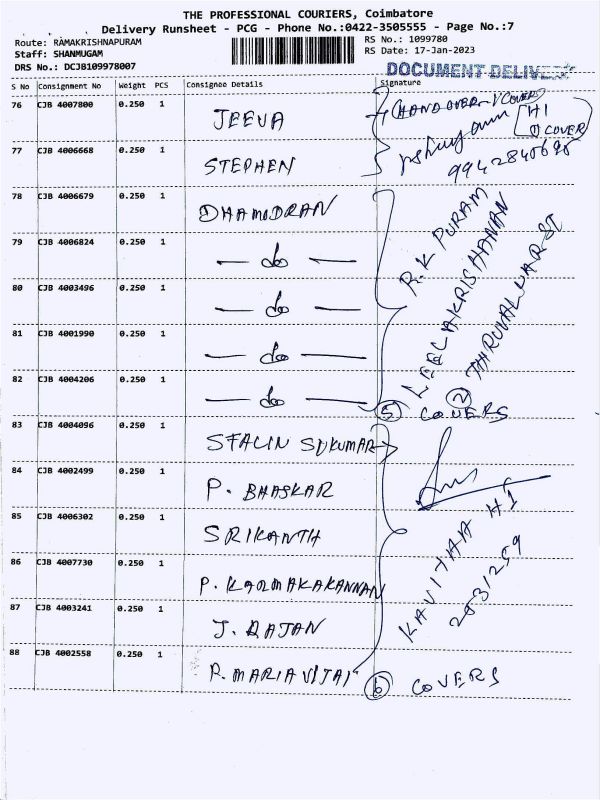 THE PROFESSIONAL COURIERS, Coimbatore
Delivery Runsheet - PCG - Phone No.:0422-3505555 - Page No.:7
Route: RAMAKRISHNAPURAM
Staff: SHANMUGAM
DRS No.: DCJB109978007
RS No.: 1099780
RS Date: 17-Jan-2023
S No Consignment No Weight PCS Consignee Details Signature
76 CJB 4007800 0.250 1 JEEVA
77 CJB 4006668 0.250 1 STEPHEN
H1
① COVER
78 CJB 4006679 0.250 1 DHAMODRAN
79 CJB 4006824 0.250 1 — do —
80 CJB 4003496 0.250 1 — do —
81 CJB 4001990 0.250 1 — do —
82 CJB 4004206 0.250 1 — do —
R.K PURAM
LEELAKRISHANAN
⑤ COVERS
83 CJB 4004096 0.250 1 STALIN SUKUMAR
84 CJB 4002499 0.250 1 P. BHASKAR
85 CJB 4006302 0.250 1 SRIKANTH
86 CJB 4007730 0.250 1 P. KARMAKAKANNAN
87 CJB 4003241 0.250 1 J. RAJAN
88 CJB 4002558 0.250 1 R. MARIAVIJAI
KAVITHAA H1
2531259
⑥ COVERS